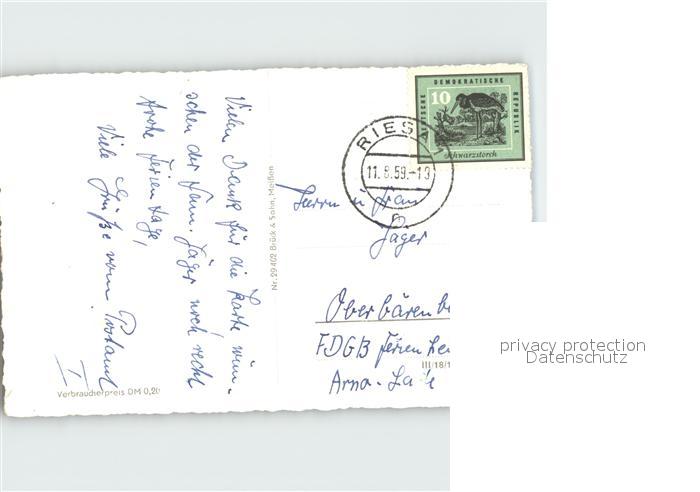 Vielen Dank für die Karte wün-
schen der Fam. Jäger noch recht
frohe Ferientage,
Viele Grüße vom Postamt
I
Verbraucherpreis DM 0,20
Nr. 29402 Brück & Sohn, Meißen
DEUTSCHE DEMOKRATISCHE REPUBLIK
10
Schwarzstorch
RIESA
11.8.59.-19
Herrn u. Frau
Jäger
Oberbärenb
FDGB Ferien
III/18/1
Arno-
privacy protection
Datenschutz